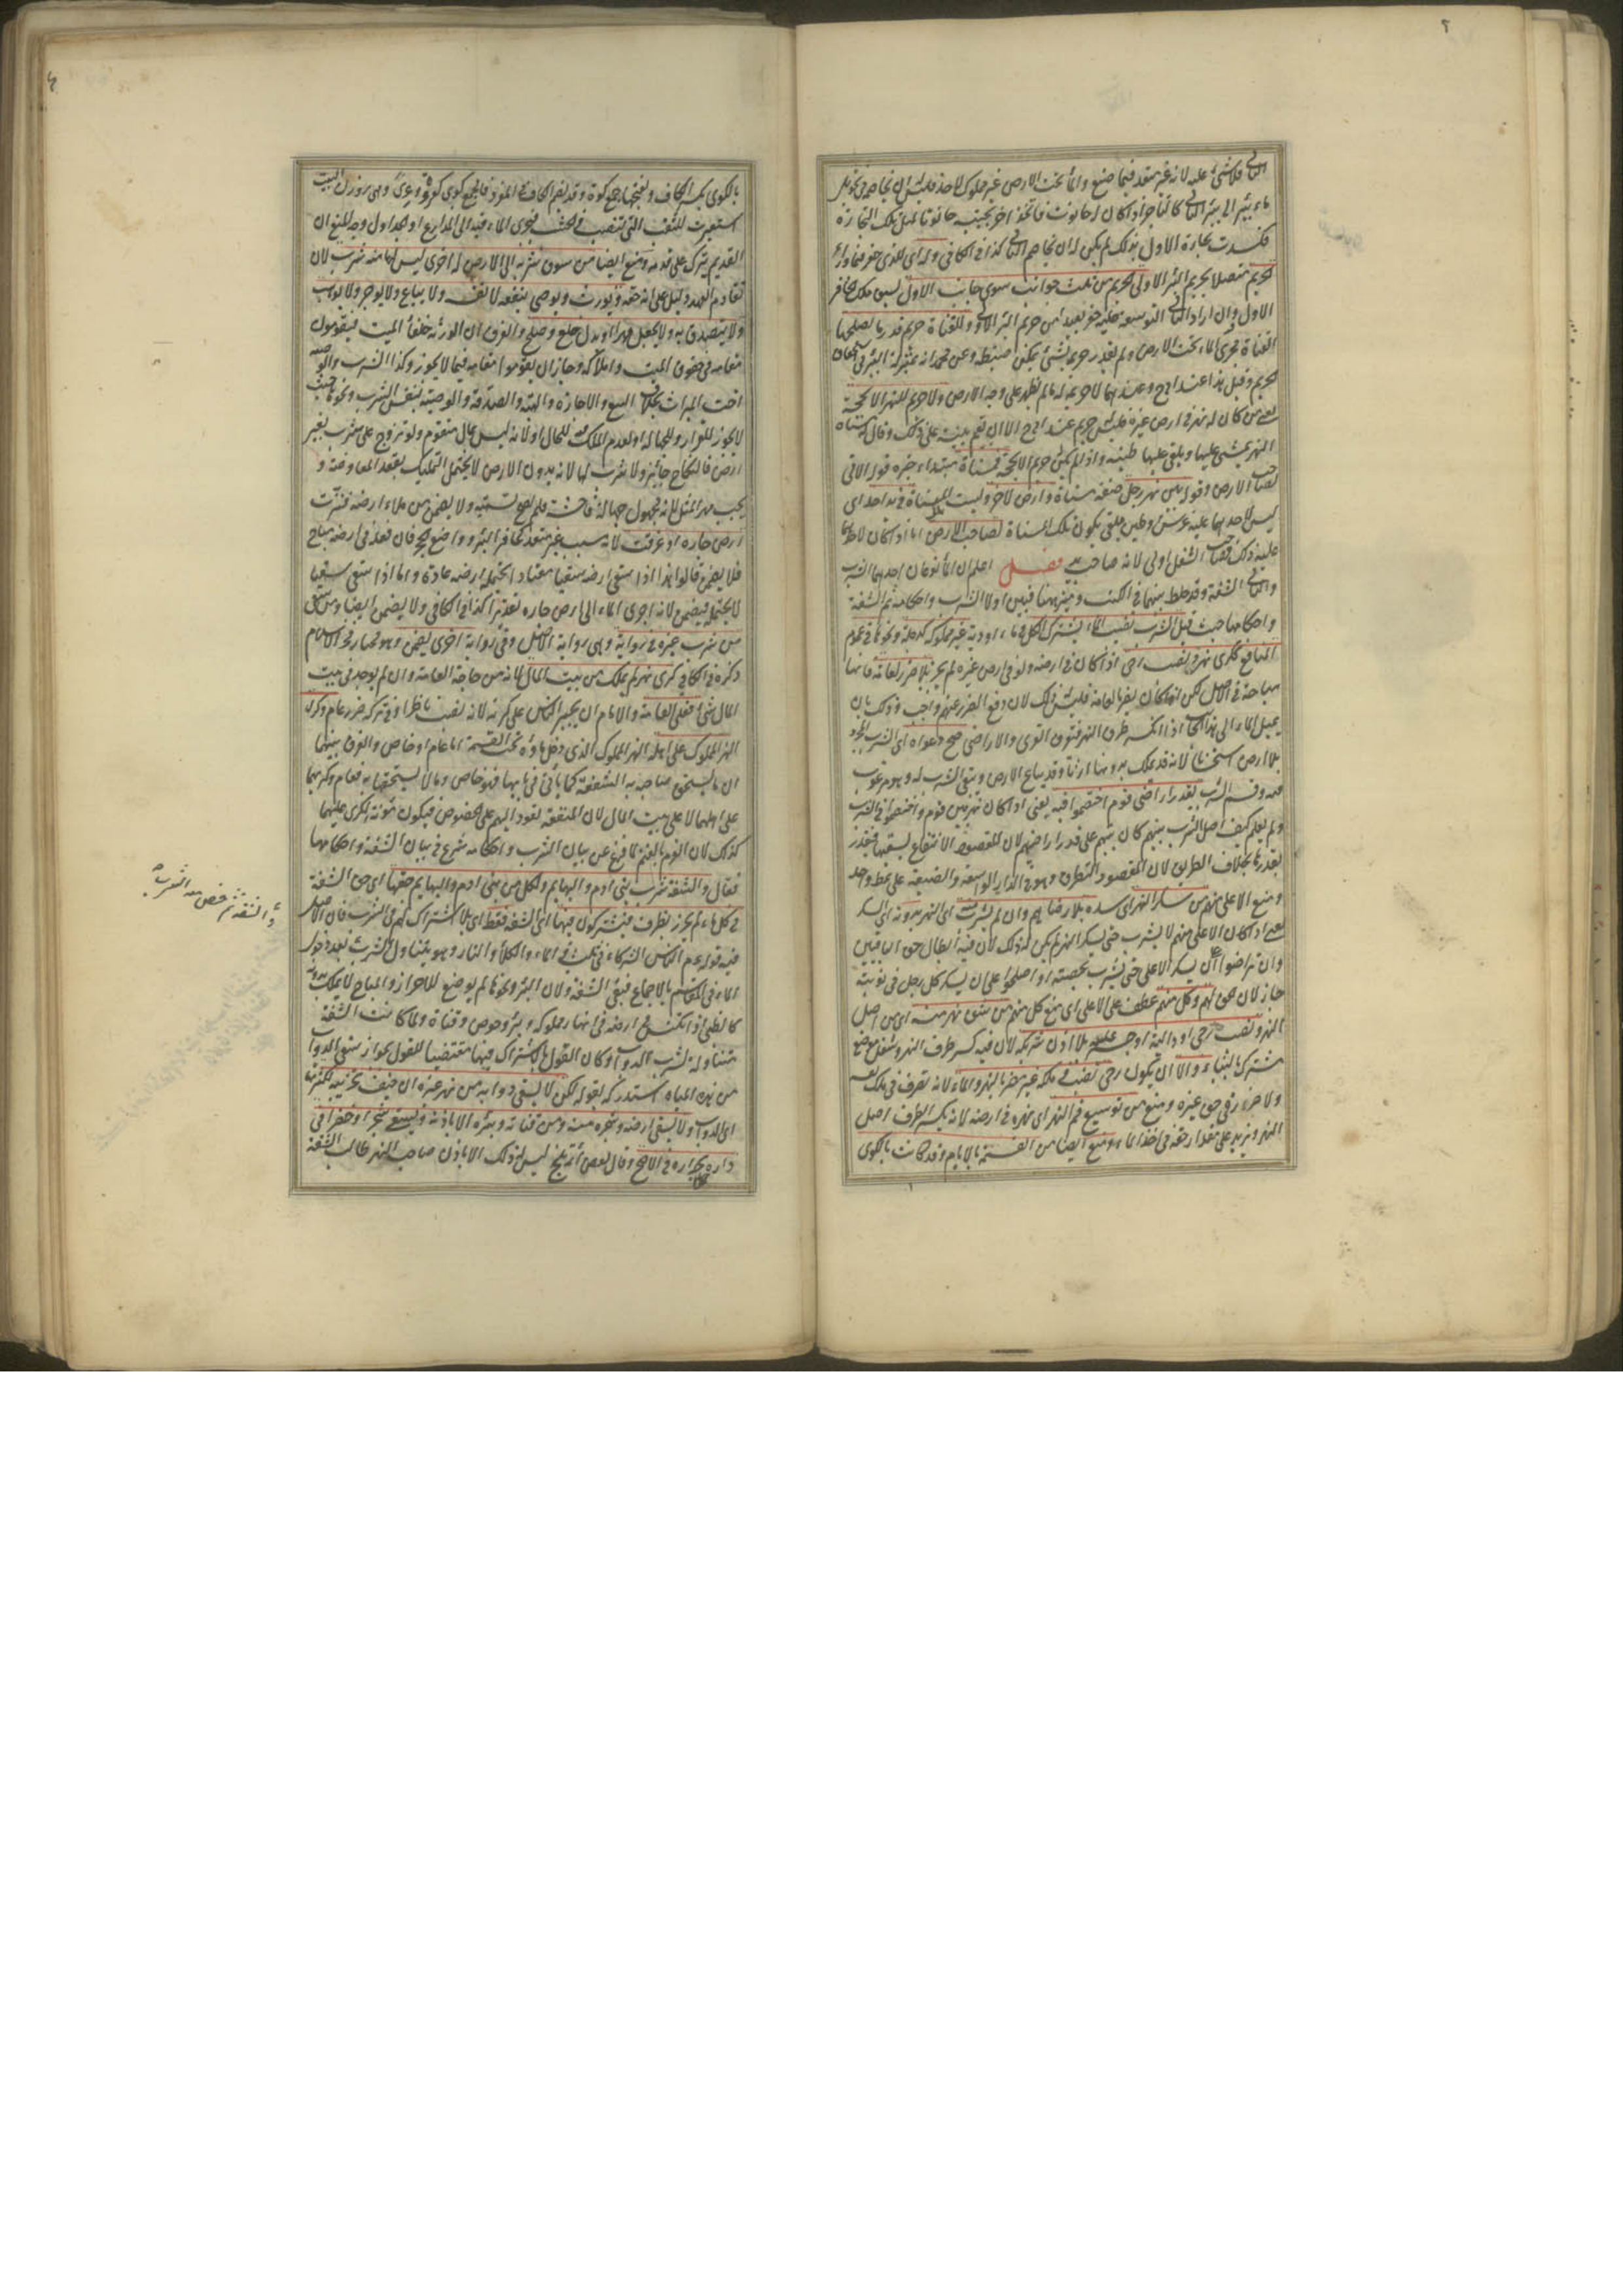 الثانى فلا شئ عليه لانه غير متعد فيما صنع والماء تحت الارض غير مملوك لاحد فليس له ان يخاصمه فى تحويل
ماء بئره الى بئر الثانى كالتاجر اذا كان له حانوت فاتخذ آخر بجنبه حانوتا لمثل تلك التجارة
فكسدت تجارة الاول بذلك لم يكن له ان يخاصم الثانى كذا فى الكافى وله اى للذى حفر فيما وراء
الحريم متصلا بحريم البئر الاولى الحريم من ثلث جوانب سوى جانب الاول لسبق ملك حافر
الاول وان اراد الثانى التوسعة عليه حفر بعيدا من حريم البئر الاولى وللقناة حريم قدر ما يصلحها
القناة مجرى الماء تحت الارض ولم يقدر حريمه بشئ يمكن ضبطه وعن محمد انه بمنزلة البئر فى استحقاق
الحريم وقيل هذا عند ابى ح وعندهما لا حريم له ما لم يظهر على وجه الارض ولا حريم للنهر الا بحجة
يعنى من كان له نهر فى ارض غيره فليس له حريم عند ابى ح الا ان يقيم بينة على ذلك وقالا له مسناة
النهر يمشى عليها ويلقى عليها طينه واذا لم يكن له حريم الا بحجة فمسناة مبتدأ خبره قوله الاتى
لصاحب الارض وقوله بين نهر رجل صفة مسناة وارض لآخر وليست المسناة فى يد احد اى
ليس لاحدهما عليه غرس وطين ملقى يكون تلك المسناة لصاحب الارض اما اذا كان لاحدهما
عليه ذلك فصاحب الشغل اولى لانه صاحب يد فصل اعلم ان الماء نوعان احدهما الشرب
والثانى الشفة وقد خلط بينهما فى الكتب وميز بينهما هنا فبين اولا الشرب واحكامه ثم الشفة
واحكامها حيث قيل الشرب نصيب الماء يشترك الكل فى ماء اودية غير مملوكة كدجلة ونحوها فى عموم
المنافع ككرى نهر ونصب رحى اذا كان فى ارضه ولو فى ارض غيره لم يجز بلا ضرر لعامة فانها
مباحة فى الاصل لكن ان كان يضر بالعامة فليس له ذلك لان دفع الضرر عنهم واجب وذلك بان
يميل الماء الى هذا الجانب اذا انكسر طرف النهر فتغرق القرى والاراضى صح دعواه اى الشرب المجرد
بلا ارض استحسانا لانه قد يملك بدونها ارثا وقد يباع الارض ويبقى الشرب له وهو مرغوب
فيه وقسم الشرب بقدر اراضى قوم اختصموا فيه يعنى اذا كان نهر بين قوم واختصموا فى الشرب
ولم يعلم كيف اصل الشرب بينهم كان بينهم على قدر اراضيهم لان المقصود الانتفاع بسقيها فيقدر
بقدرها بخلاف الطريق لان المقصود التطرق وهو فى الدار الواسعة والضيقة على نمط واحد
ومنع الاعلى منهم من سكر النهر اى سده بلا رضاهم وان لم يشرب اى النهر بدونه اى السكر
يعنى اذا كان الاعلى منهم لا يشرب حتى يسكر النهر لم يكن له ذلك لان فيه ابطال حق الباقين
وان تراضوا على ان يسكر الاعلى حتى يشرب بحصته او اصطلحوا على ان يسكر كل رجل فى نوبته
جاز لان الحق لهم وكل منهم عطف على الاعلى اى منع كل منهم من شق نهر منه اى من اصل
النهر ونصب رحى او دالية او جسر عليه بلا اذن شريكه لان فيه كسر طرف النهر وشغل موضع
مشترك بالبناء والا ان تكون رحى نصب فى ملكه غير مضر بالنهر والماء لانه تصرف فى ملك نفسه
ولا ضرر فى حق غيره ومنع من توسيع فم النهر اى نهره فى ارضه لانه يكسر الطرف اصل
النهر ويزيد على مقدار حقه فى اخذ الماء ومنع ايضا من القسمة بالايام وقد كانت بالكوى
بالكوى بكسر الكاف وبفتحها جمع كوة وقد يضم الكاف فى المفرد فالجمع كوى كعروة وعرى وهى روزن البيت
استعيرت للثقب التى تنصب فى الخشب فيجرى الماء فيه الى المزارع او الجداول وجه المنع ان
القديم يترك على قدمه ومنع ايضا من سوق شربه الى الارض له اخرى ليس لها منه شرب لان
تقادم العهد دليل على انه حقه ويورث ويوصى بنفعه لا نفسه ولا يباع ولا يوجر ولا يوهب
ولا يتصدق به ولا يجعل مهرا وبدل خلع وصلح والفرق ان الورثة خلفاء الميت فيقومون
مقامه فى حقوق الميت واملاكه وجاز ان يقوموا مقامه فيما لا يجوز وكذا الشرب والوصية
اخت الميراث بخلاف البيع والاجارة والهبة والصدقة والوصية بنفس الشرب ونحوها حيث
لا يجوز للغرر وللجهالة او لعدم الملك فيه للحال او لانه ليس بمال متقوم ولو تزوج على شرب بغير
ارض فالنكاح جائز ولا شرب لها لانه بدون الارض لا يحتمل التمليك بعقد المعاوضة و
يجب مهر المثل لانه مجهول جهالة فاحشة فلم يصح تسميته ولا يضمن من ملاء ارضه فنزت
ارض جاره او غرقت لانه سبب غير متعد كحافر البئر وواضع الحجر فان فعله فى ارضه مباح
فلا يضمن قالوا هذا اذا سقى ارضه سقيا معتادا تحتمله ارضه عادة واما اذا سقى سقيا
لا تحتمله فيضمن لانه اجرى الماء الى ارض جاره تقديرا كذا فى الكافى ولا يضمن ايضا من سقى
من شرب غيره فى رواية وهى رواية الاصل وفى رواية اخرى يضمن وهو مختار فخر الاسلام
ذكره فى الكافى كرى نهر لم يملك من بيت المال لانه من حاجة العامة وان لم يوجد فى بيت
المال شئ فعلى العامة والامام ان يجبر الناس على كريه لانه نصب ناظرا وفى تركه ضرر عام وكرى
النهر المملوك على اهله النهر المملوك الذى دخل ماؤه تحت القسمة اما عام او خاص والفرق بينهما
ان ما يستحق صاحبه به الشفعة كما يأتى فى بابها فهو خاص وما لا يستحقها به فعام وكريهما
على اهلهما لا على بيت المال لان المنفعة تعود اليهم على الخصوص فيكون مؤنة الكرى عليهما
كذلك لان الغرم بالغنم لما فرغ عن بيان الشرب واحكامه شرع فى بيان الشفة واحكامها
فقال والشفة شرب بنى ادم والبهايم ولكل من بنى ادم والبهايم حقها اى حق الشفة
فى كل ماء لم يحرز بظرف فيشتركون فيها اى الشفة فقط اى بلا اشتراك لهم فى الشرب فان الاصل
فيه قوله عم الناس الشركاء فى ثلث فى الماء والكلأ والنار وهو يتناول الشرب بعد دخول
الماء فى المقاسم بالاجماع فبقى الشفة ولان البئر ونحوها لم يوضع للاحراز والمباح لا يملك بدونه
كالظبى اذا تكنس فى ارضه فى انهار مملوكة وبئر وحوض وقناة ولما كانت الشفة
متناولة لشرب الدواب وكان القول بالاشتراك فيها مقتضيا للقول بجواز سقى الدواب
من هذه المياه استدركه بقوله لكن لا يسقى دوابه من نهر غيره ان خيف تخريبه لكثرتها
اى الدواب ولا يسقى ارضه وشجره منه ومن قناته وبئره الا باذنه ويسقى شجرا وخضرا فى
داره بجراره فى الاصح وقال بعض أئمة بلخ ليس له ذلك الا باذن صاحب النهر طالب الشفة